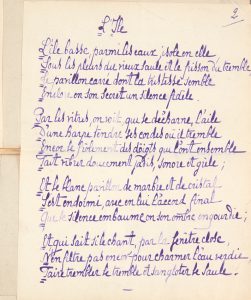 2
L'Ile
L'île basse parmi les eaux isole en elle
Sous les pleurs du vieux saule et le frisson du tremble
Le pavillon carré dont la tristesse semble
Enclore en son secret un silence fidèle
Par les vitres, on voit que se décharne, l'aile
D'une harpe tendre ses cordes où il tremble
encor le frôlement des doigts qui l'ont ensemble
Fait vibrer doucement
Et le blanc pavillon de marbre et de cristal
S'est endormi, avec en lui l'accord final
Que le silence embaume en son ombre engourdie;
Et qui sait si le chant, par la fenêtre close,
N'en filtre pas encor pour charmer l'eau verdie
Faire trembler le tremble et sangloter le saule.